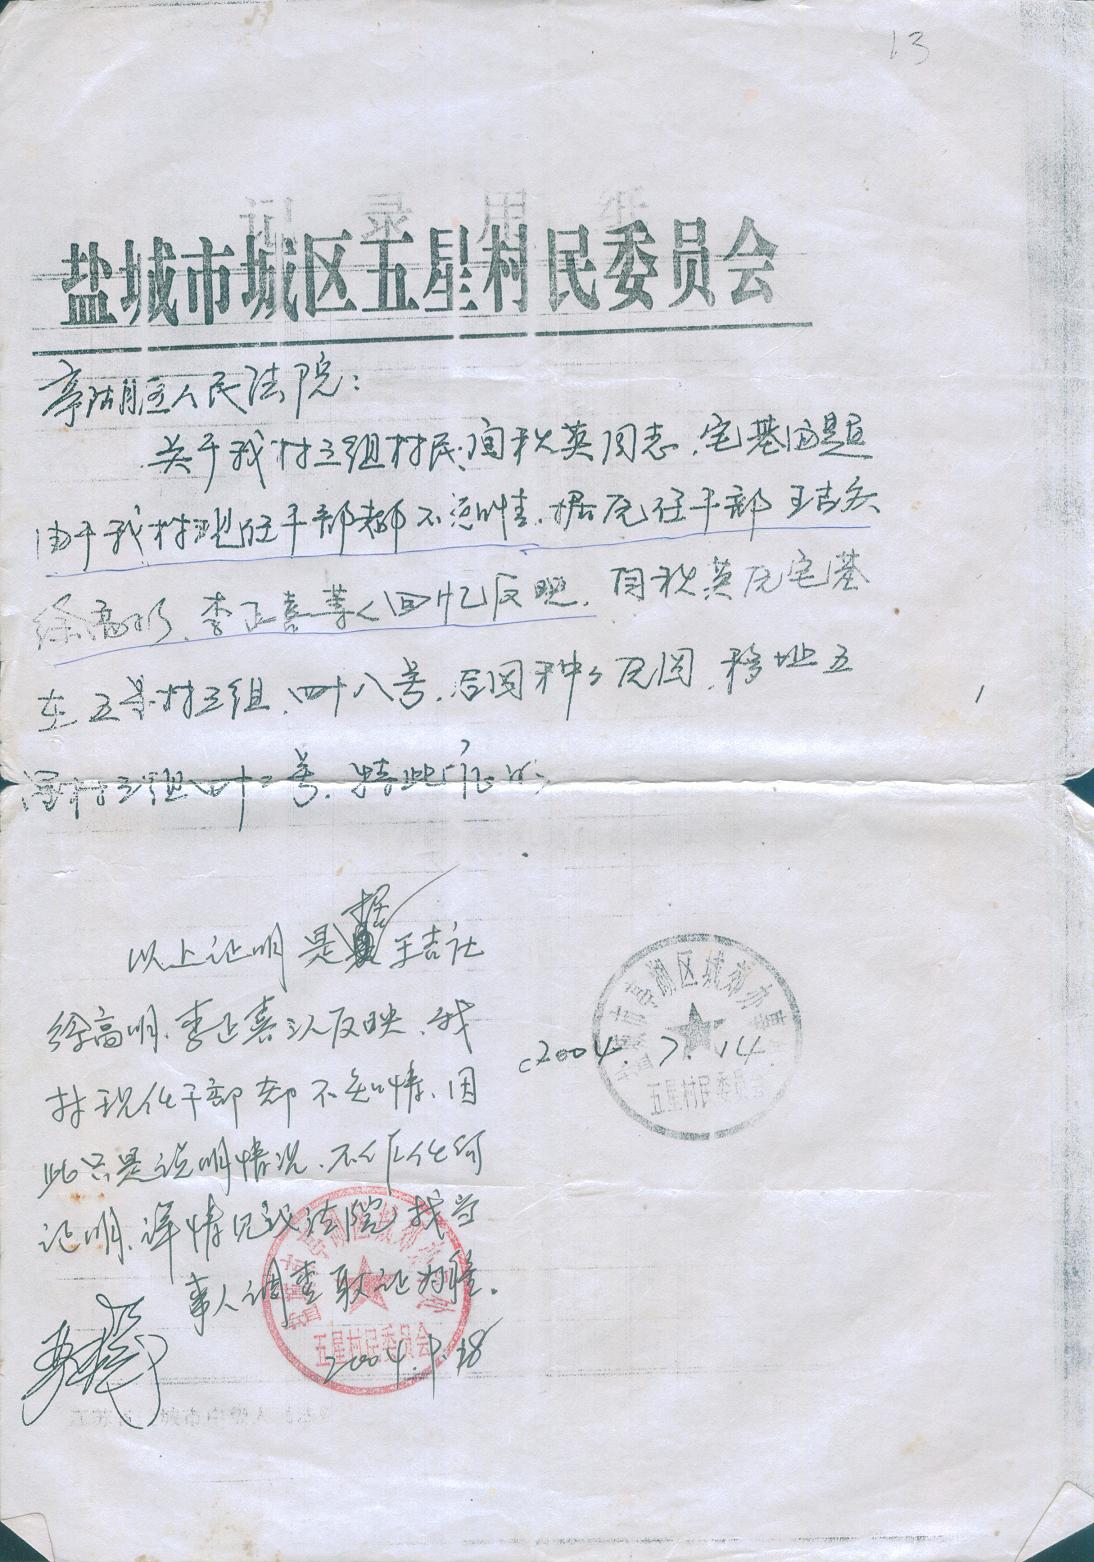 13
盐城市城区五星村民委员会
亭湖区人民法院：
关于我村三组村民闾秋英同志，宅基问题
由于我村现任干部都不知情，据原任干部王吉
徐高明、李正喜等人回忆反映，闾秋英原宅基
在五星村三组，四十八号，后因种种原因，移址五
星村三组四十二号，特此证明
以上证明是据王吉社
徐高明、李正喜三人反映，我
村现任干部都不知情，因
此只是说明情况，不作任何
证明，详情见议法院找当
事人调查取证为准。
2004.7.14
盐城市亭湖区城郊办事
五星村民委员会
盐城市亭湖区城郊办事
五星村民委员会
2004.9.28